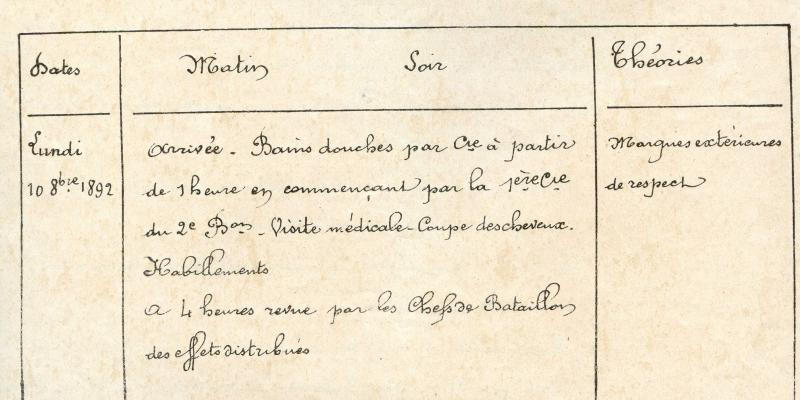 Dates Matin Soir Théories
Lundi
10 8bre 1892
Arrivée - Bains douches par Cie à partir
de 1 heure en commençant par la 1ère Cie
du 2e Bon - Visite médicale - Coupe des cheveux.
Habillements
A 4 heures revue par les Chefs de Bataillon
des effets distribués
Marques extérieures
de respect